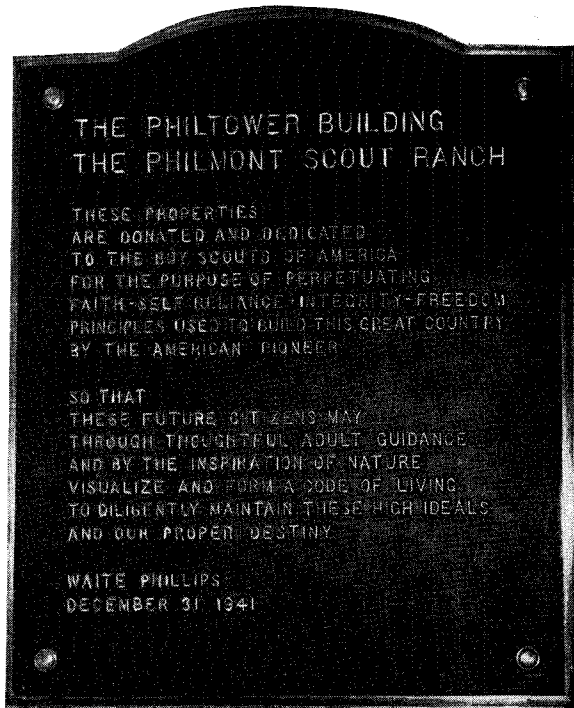 THE PHILTOWER BUILDING
THE PHILMONT SCOUT RANCH
THESE PROPERTIES
ARE DONATED AND DEDICATED
TO THE BOY SCOUTS OF AMERICA
FOR THE PURPOSE OF PERPETUATING
FAITH-SELF RELIANCE-INTEGRITY-FREEDOM
PRINCIPLES USED TO BUILD THIS GREAT COUNTRY
BY THE AMERICAN PIONEER
SO THAT
THESE FUTURE CITIZENS MAY
THROUGH THOUGHTFUL ADULT GUIDANCE
AND BY THE INSPIRATION OF NATURE
VISUALIZE AND FORM A CODE OF LIVING
TO DILIGENTLY MAINTAIN THESE HIGH IDEALS
AND OUR PROPER DESTINY
WAITE PHILLIPS
DECEMBER 31 1941